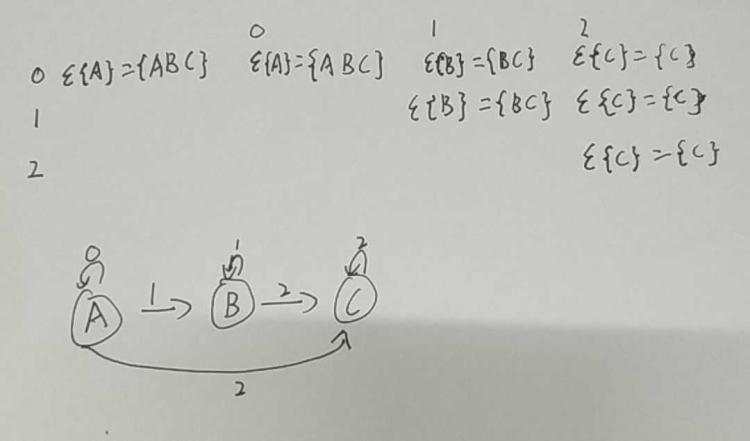 0 1 2
0 ε{A}={ABC} ε{A}={ABC} ε{B}={BC} ε{C}={C}
1 ε{B}={BC} ε{C}={C}
2 ε{C}={C}
0 1 2
A 1 B 2 C
2